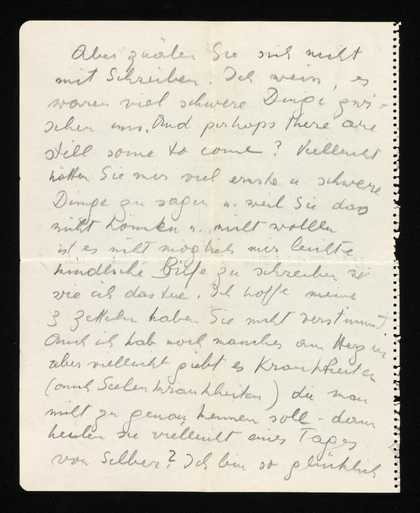 Aber quälen Sie sich nicht
mit Schreiben. Ich weiss, es
waren viel schwere Dinge zwi-
schen uns. And perhaps there are
still some to come? Vielleicht
hätten Sie mir viel ernste u schwere
Dinge zu sagen u. weil Sie das
nicht können u. nicht wollen
ist es nicht möglich mir leichte
kindliche Briefe zu schreiben so
wie ich das tue. Ich hoffe meine
3 Zettelen haben Sie nicht verstimmt.
Auch ich hab noch manches am Herzen
aber vielleicht giebt es Krankheiten
(auch Seelenkrankheiten) die man
nicht zu genau kennen soll - dann
heilen sie vielleicht eines Tages
von selber? Ich bin so glücklich